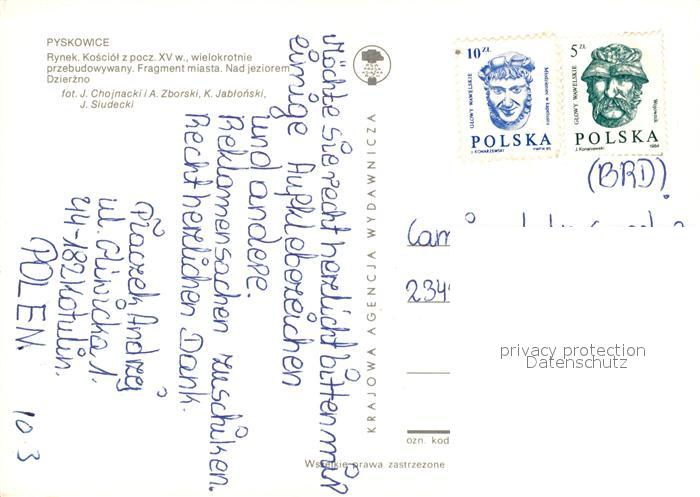 PYSKOWICE
Rynek. Kościół z pocz. XV w., wielokrotnie
przebudowywany. Fragment miasta. Nad jeziorem
Dzierżno
fot. J. Chojnacki i A. Zborski, K. Jabłoński,
J. Siudecki
Möchte sie recht herzlicht bitten mir
einige Aufkleberzeichen
und andere.
Reklamensachen zuschiken.
Recht herzlichen Dank.
Płaczek Andrzej
ul. Gliwicka 1.
44-182 Kotulin.
(POLEN.
10.3
KRAJOWA AGENCJA WYDAWNICZA
10 ZŁ
GŁOWY WAWELSKIE
Młodzieniec w kapeluszu
POLSKA
J. KONARZEWSKI
PWPW 85
5 ZŁ
GŁOWY WAWELSKIE
Wojownik
POLSKA
J. Konarzewski
1984
(BRD)
Cam
234
privacy protection
Datenschutz
ozn. kod
Wszelkie prawa zastrzeżone